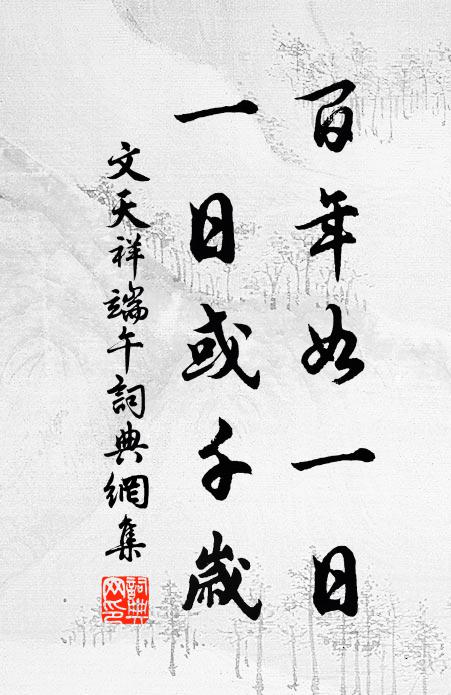 百年如一日
一日或千歲
文天祥端午詞典網集
詞典網印